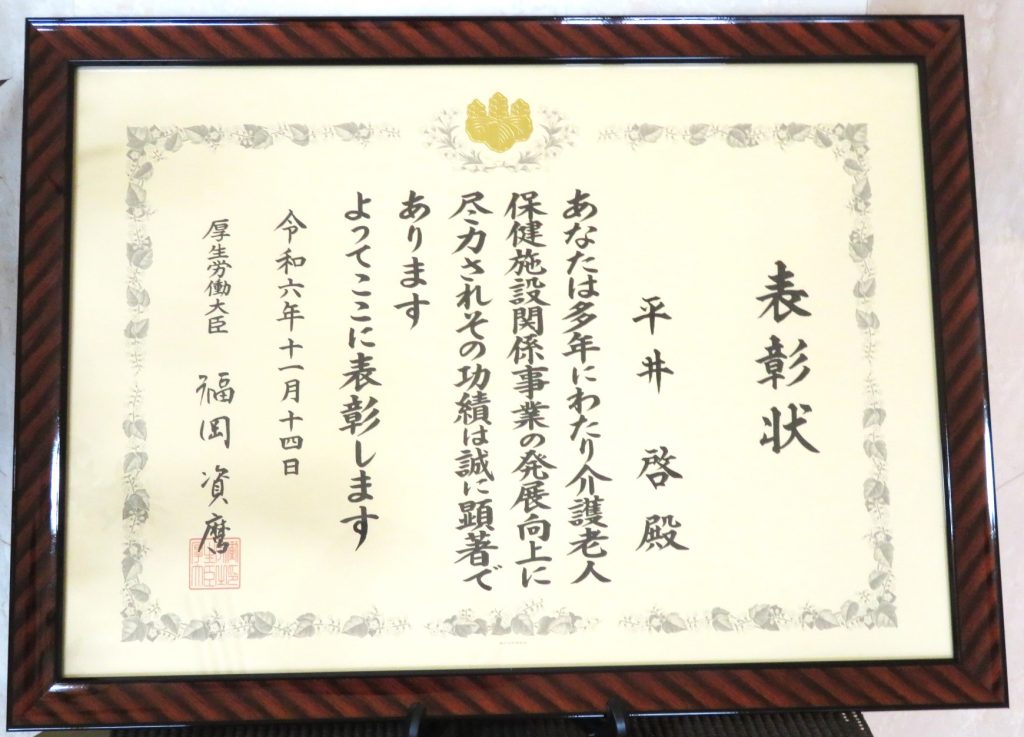 表彰状
平井 啓 殿
あなたは多年にわたり介護老人
保健施設関係事業の発展向上に
尽力されその功績は誠に顕著で
あります
よってここに表彰します
令和六年十一月十四日
厚生労働大臣 福岡資麿